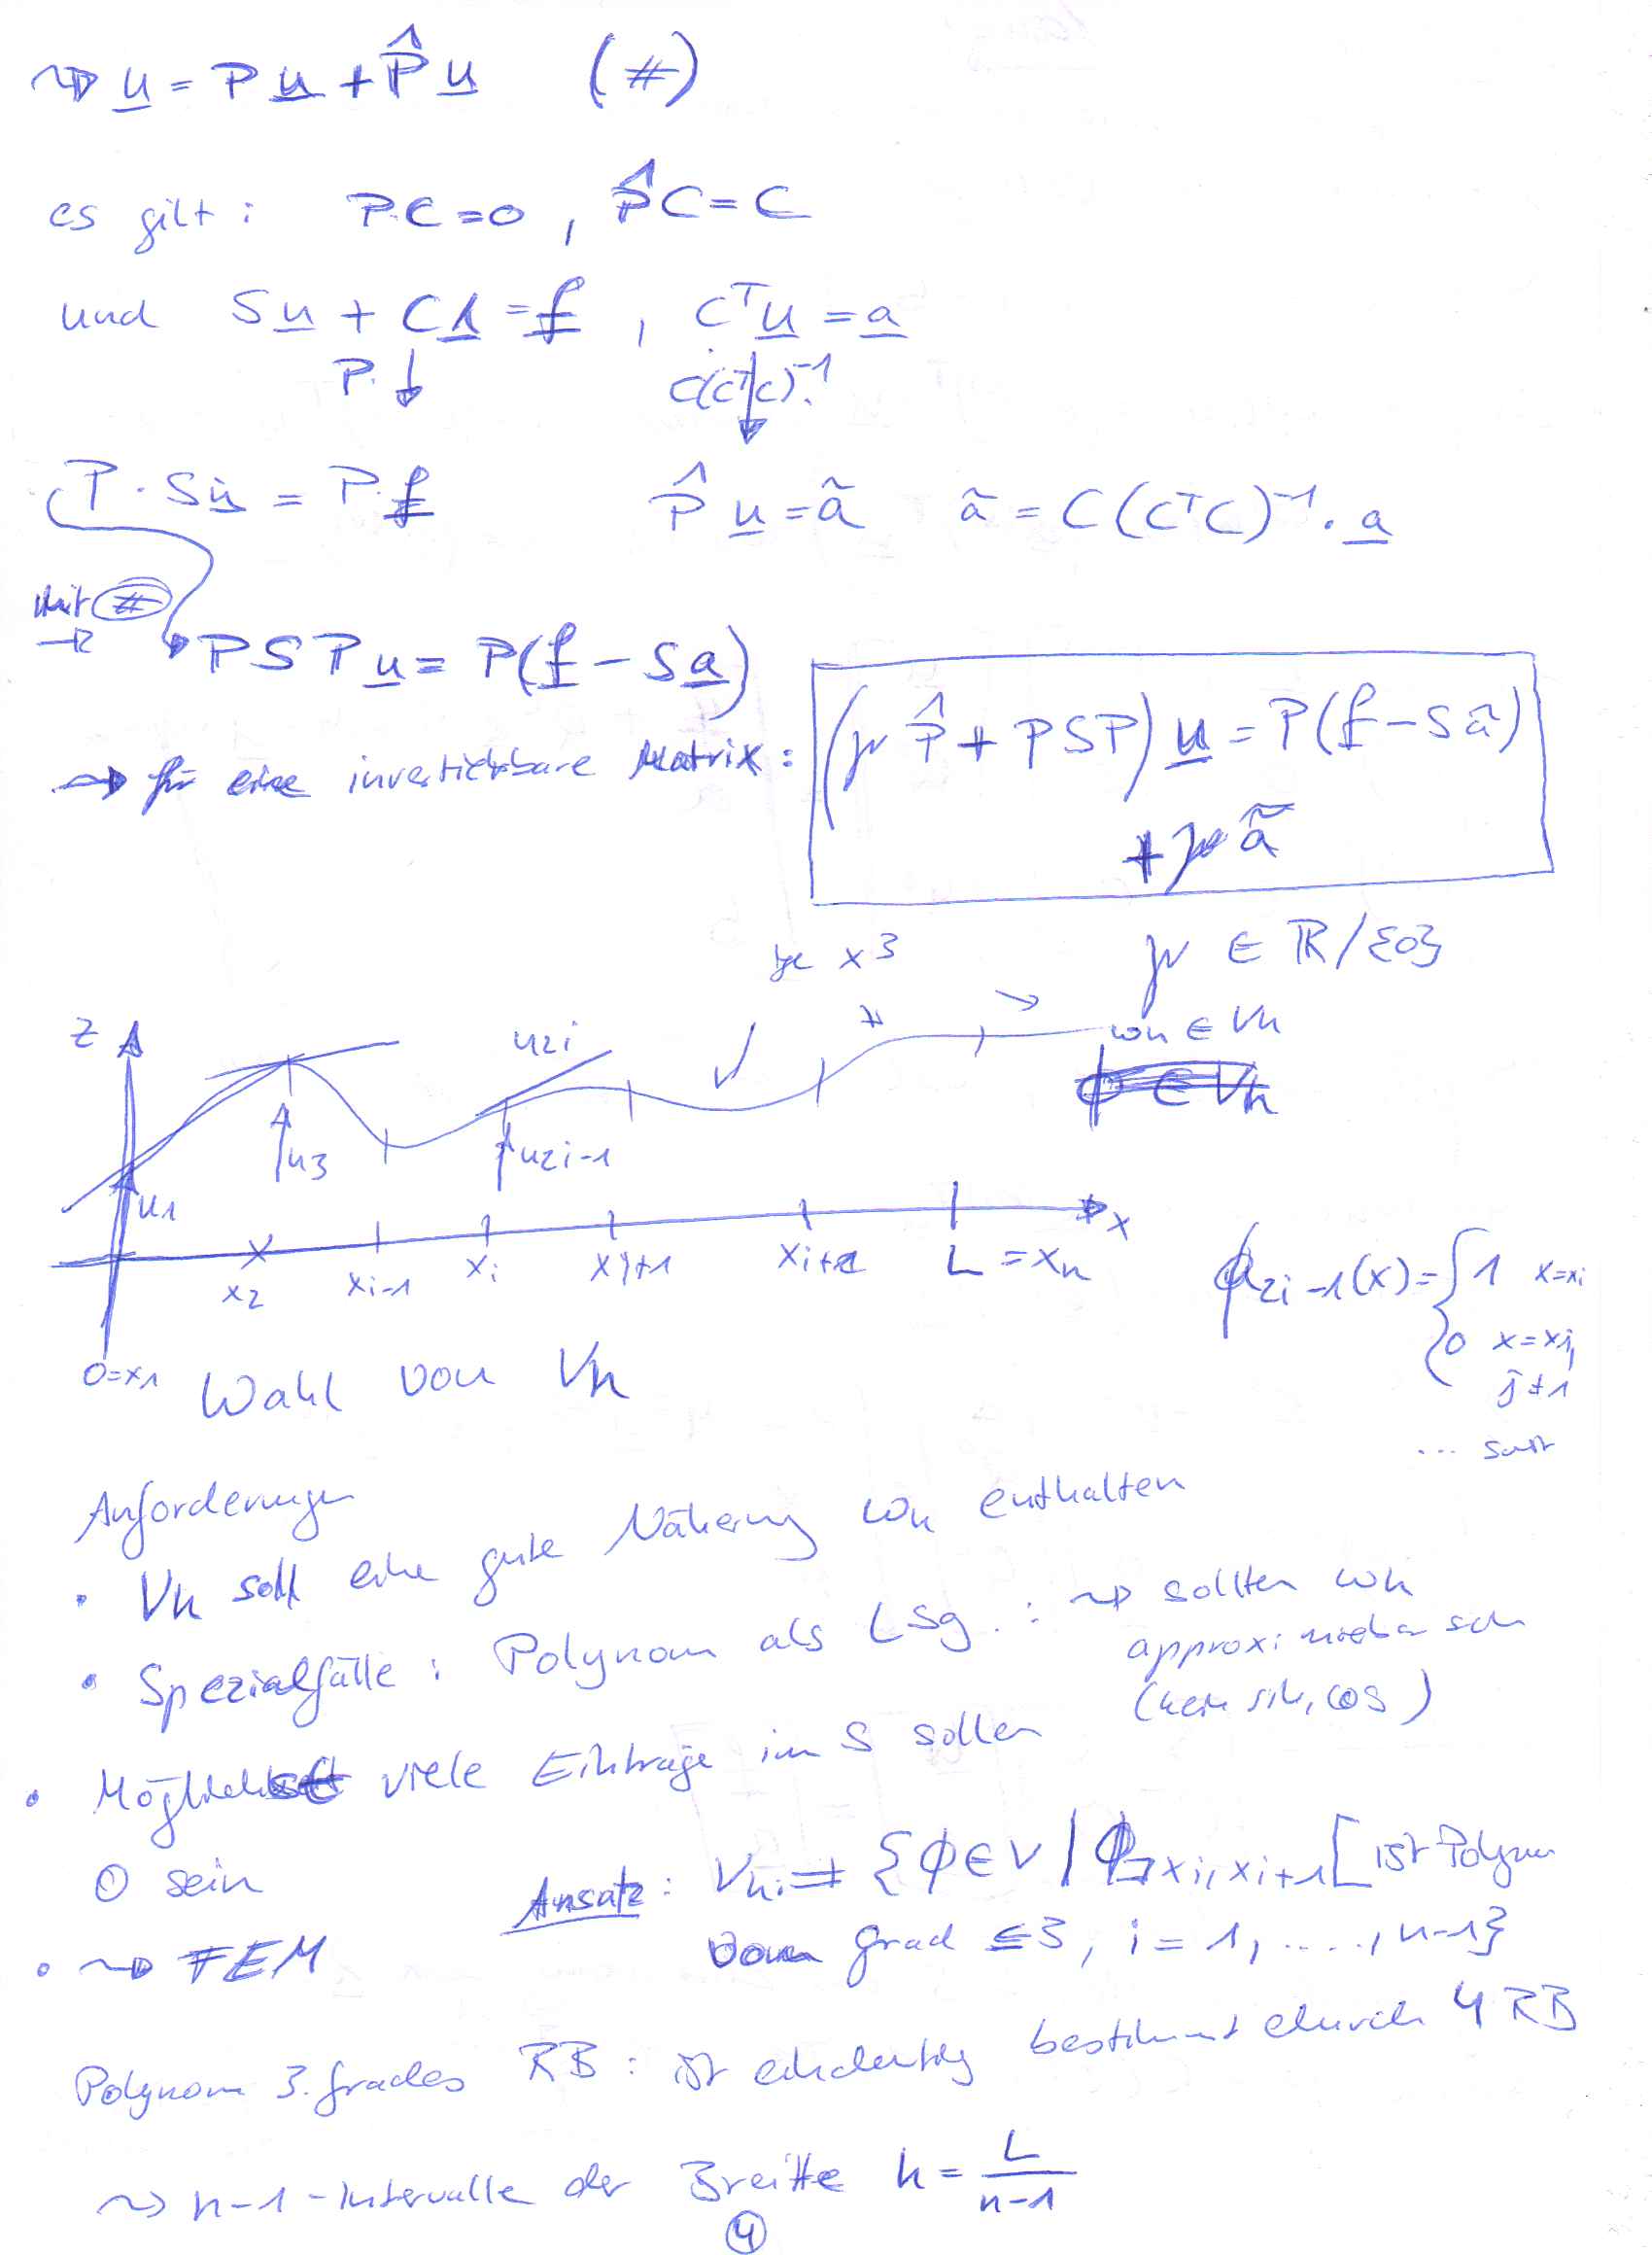 ⇝ u = Pu + P̂u (#)
es gilt: P·C=0, P̂C=C
und Su + CΛ = f, Cᵀu = a
P· ↓ C(CᵀC)⁻¹· ↓
P·Su = P·f P̂u = ã ã = C(CᵀC)⁻¹·a
Mit #
→ PSPu = P(f − Sa)
⇝ für eine invertierbare Matrix: (μP̂ + PSP)u = P(f − Sã)
+ μã
μ ∈ ℝ/{0}
x³
z
u2i
wh ∈ Vh
ϕ ∈ Vh
u3
u2i-1
u1
x
x2 xi-1 xi xi+1 L = xn
ϕ2i-1(x) = { 1 x=xi
0 x=xj,
j≠1
... sonst
0=x1
Wahl von Vh
Anforderungen
• Vh soll eine gute Näherung wh enthalten
• Spezialfälle: Polynom als Lsg.: ⇝ sollten wh
approximierbar sein
(kein sin, cos)
• Möglichst viele Einträge im S sollen
0 sein
Ansatz: Vh := {ϕ∈V | ϕ]xi,xi+1[ ist Polynom
vom Grad ≤3, i = 1,....,n-1}
• ⇝ FEM
Polynom 3. Grades RB: ist eindeutig bestimmt durch 4 RB
⇝ n-1-Intervalle der Breite h = L/(n-1)
4